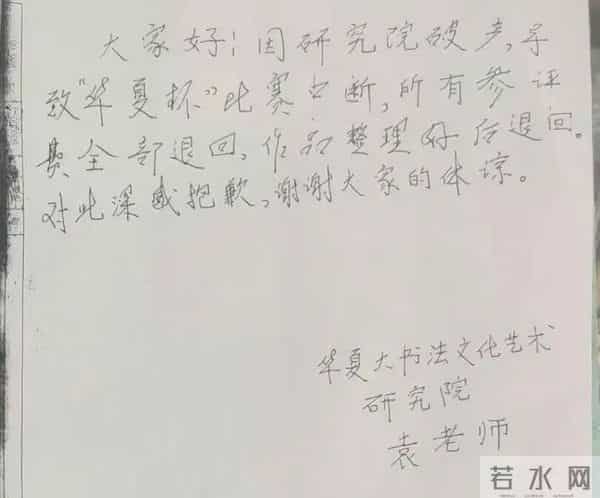 大家好！因研究院破产，导
致“华夏杯”比赛中断，所有参评
费全部退回，作品整理好后退回。
对此深感抱歉，谢谢大家的体谅。
华夏大书法文化艺术
研究院
袁老师
若水网